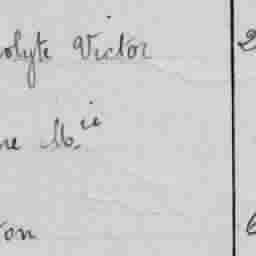 olyte Victor 2
ne M.ie
on 6